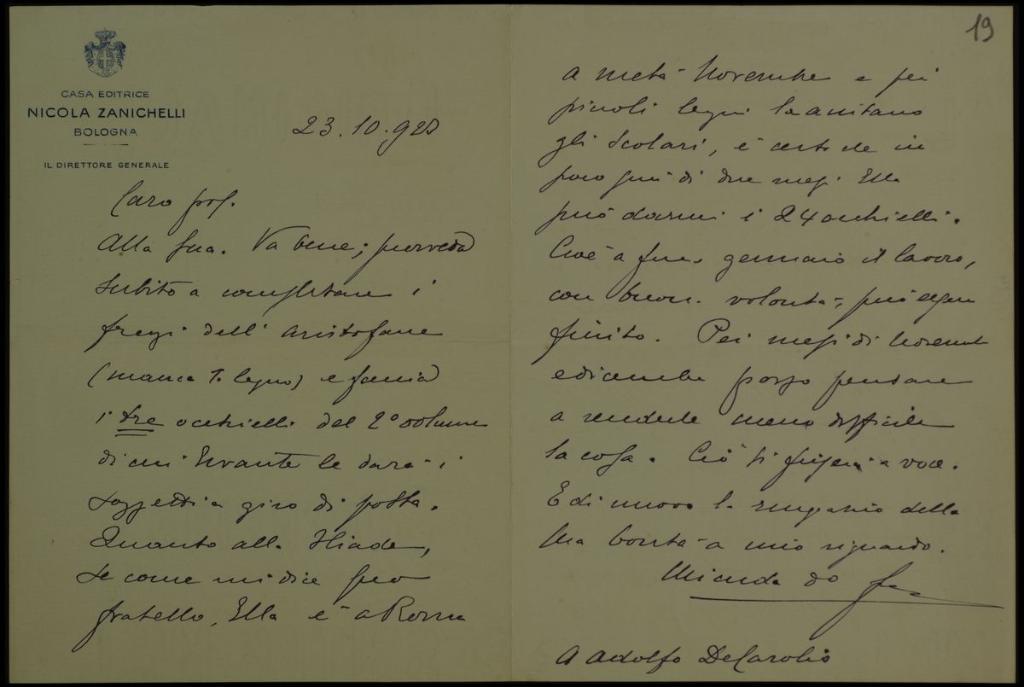 CASA EDITRICE
NICOLA ZANICHELLI
BOLOGNA
IL DIRETTORE GENERALE
23.10.92
Caro prof.
Alla sua. Va bene; provveda
subito a completare i
fregi dell' Aristofane
(manca 1 legno) e faccia
i tre occhielli del 2º volume
di cui le darà i
soggetti a giro di posta.
Quanto alla Iliade,
se come mi dice suo
fratello, Ella è a Roma
19
a metà Novembre e pei
piccoli legni la aiutano
gli scolari, è certo che in
poco più di due mesi Ella
può darmi i 24 occhielli.
Cioè a fine gennaio il lavoro,
con buona volontà, può esser
finito. Pei mesi di Novemb
e dicembre posso pensare
a renderle meno difficile
la cosa. Ciò si a voce.
E di nuovo la ringrazio della
sua bontà a mio riguardo.
Mi creda
A Adolfo De Carolis